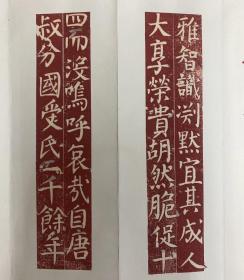 雅智識渕默宜其成人
大享榮費胡然脆促十
四而没嗚呼哀哉自唐
叔分國受氏二千餘年